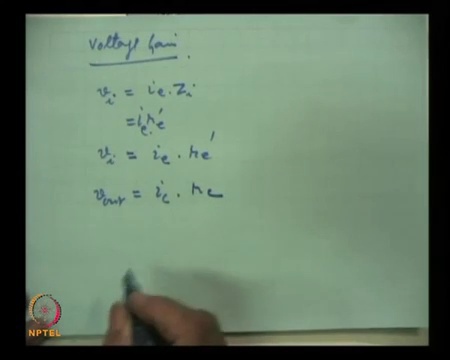 Voltage Gain.
v_i = i_e . Z_i
= i_e r_e'
v_i = i_e . r_e'
v_out = i_c . r_c
NPTEL